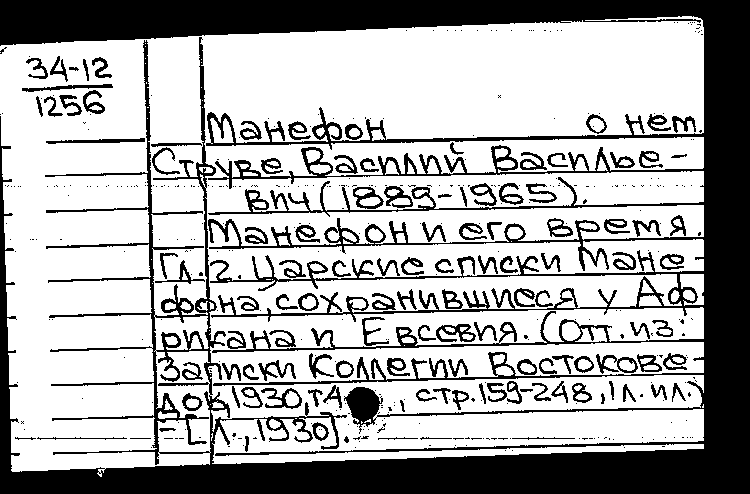 34-12
1256
Манефон о нем.
Струве, Василий Василье-
вич (1889-1965).
Манефон и его время.
Гл. 2. Царские списки Мане-
фона, сохранившиеся у Аф-
рикана и Евсевия. (Отт. из:
Записки Коллегии Востокове-
дов, 1930, т4 ., стр. 159-248, 1 л. ил.)
- [Л., 1930].